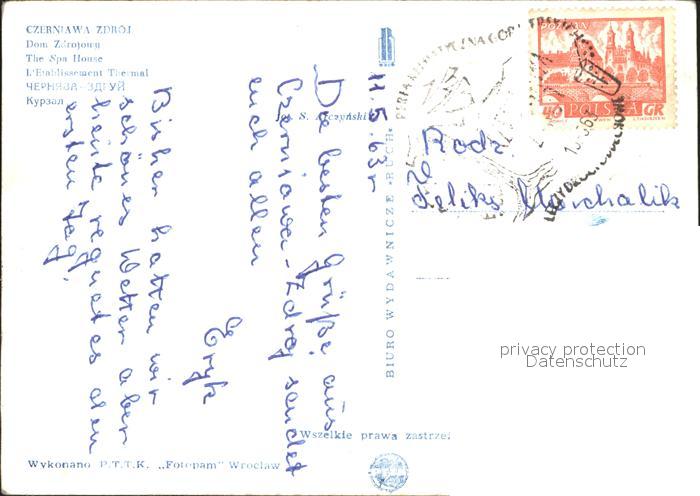 CZERNIAWA ZDRÓJ
Dom Zdrojowy
The Spa House
L'Etablissement Thermal
ЧЕРНЯВА-ЗДРУЙ
Курзал
11. 5. 63 r
Die besten Grüße aus
Czerniawa-Zdrój sendet
euch allen
Eryk
Bisher hatten wir
schönes Wetter aber
heute regnet es den
ersten Tag.
BIURO WYDAWNICZE „RUCH"
POZNAŃ
40 POLSKA GR
Rodz.
Feliks Marchalik
privacy protection
Datenschutz
Wszelkie prawa zastrzeż
Wykonano P.T.T.K. „Fotopam" Wrocław